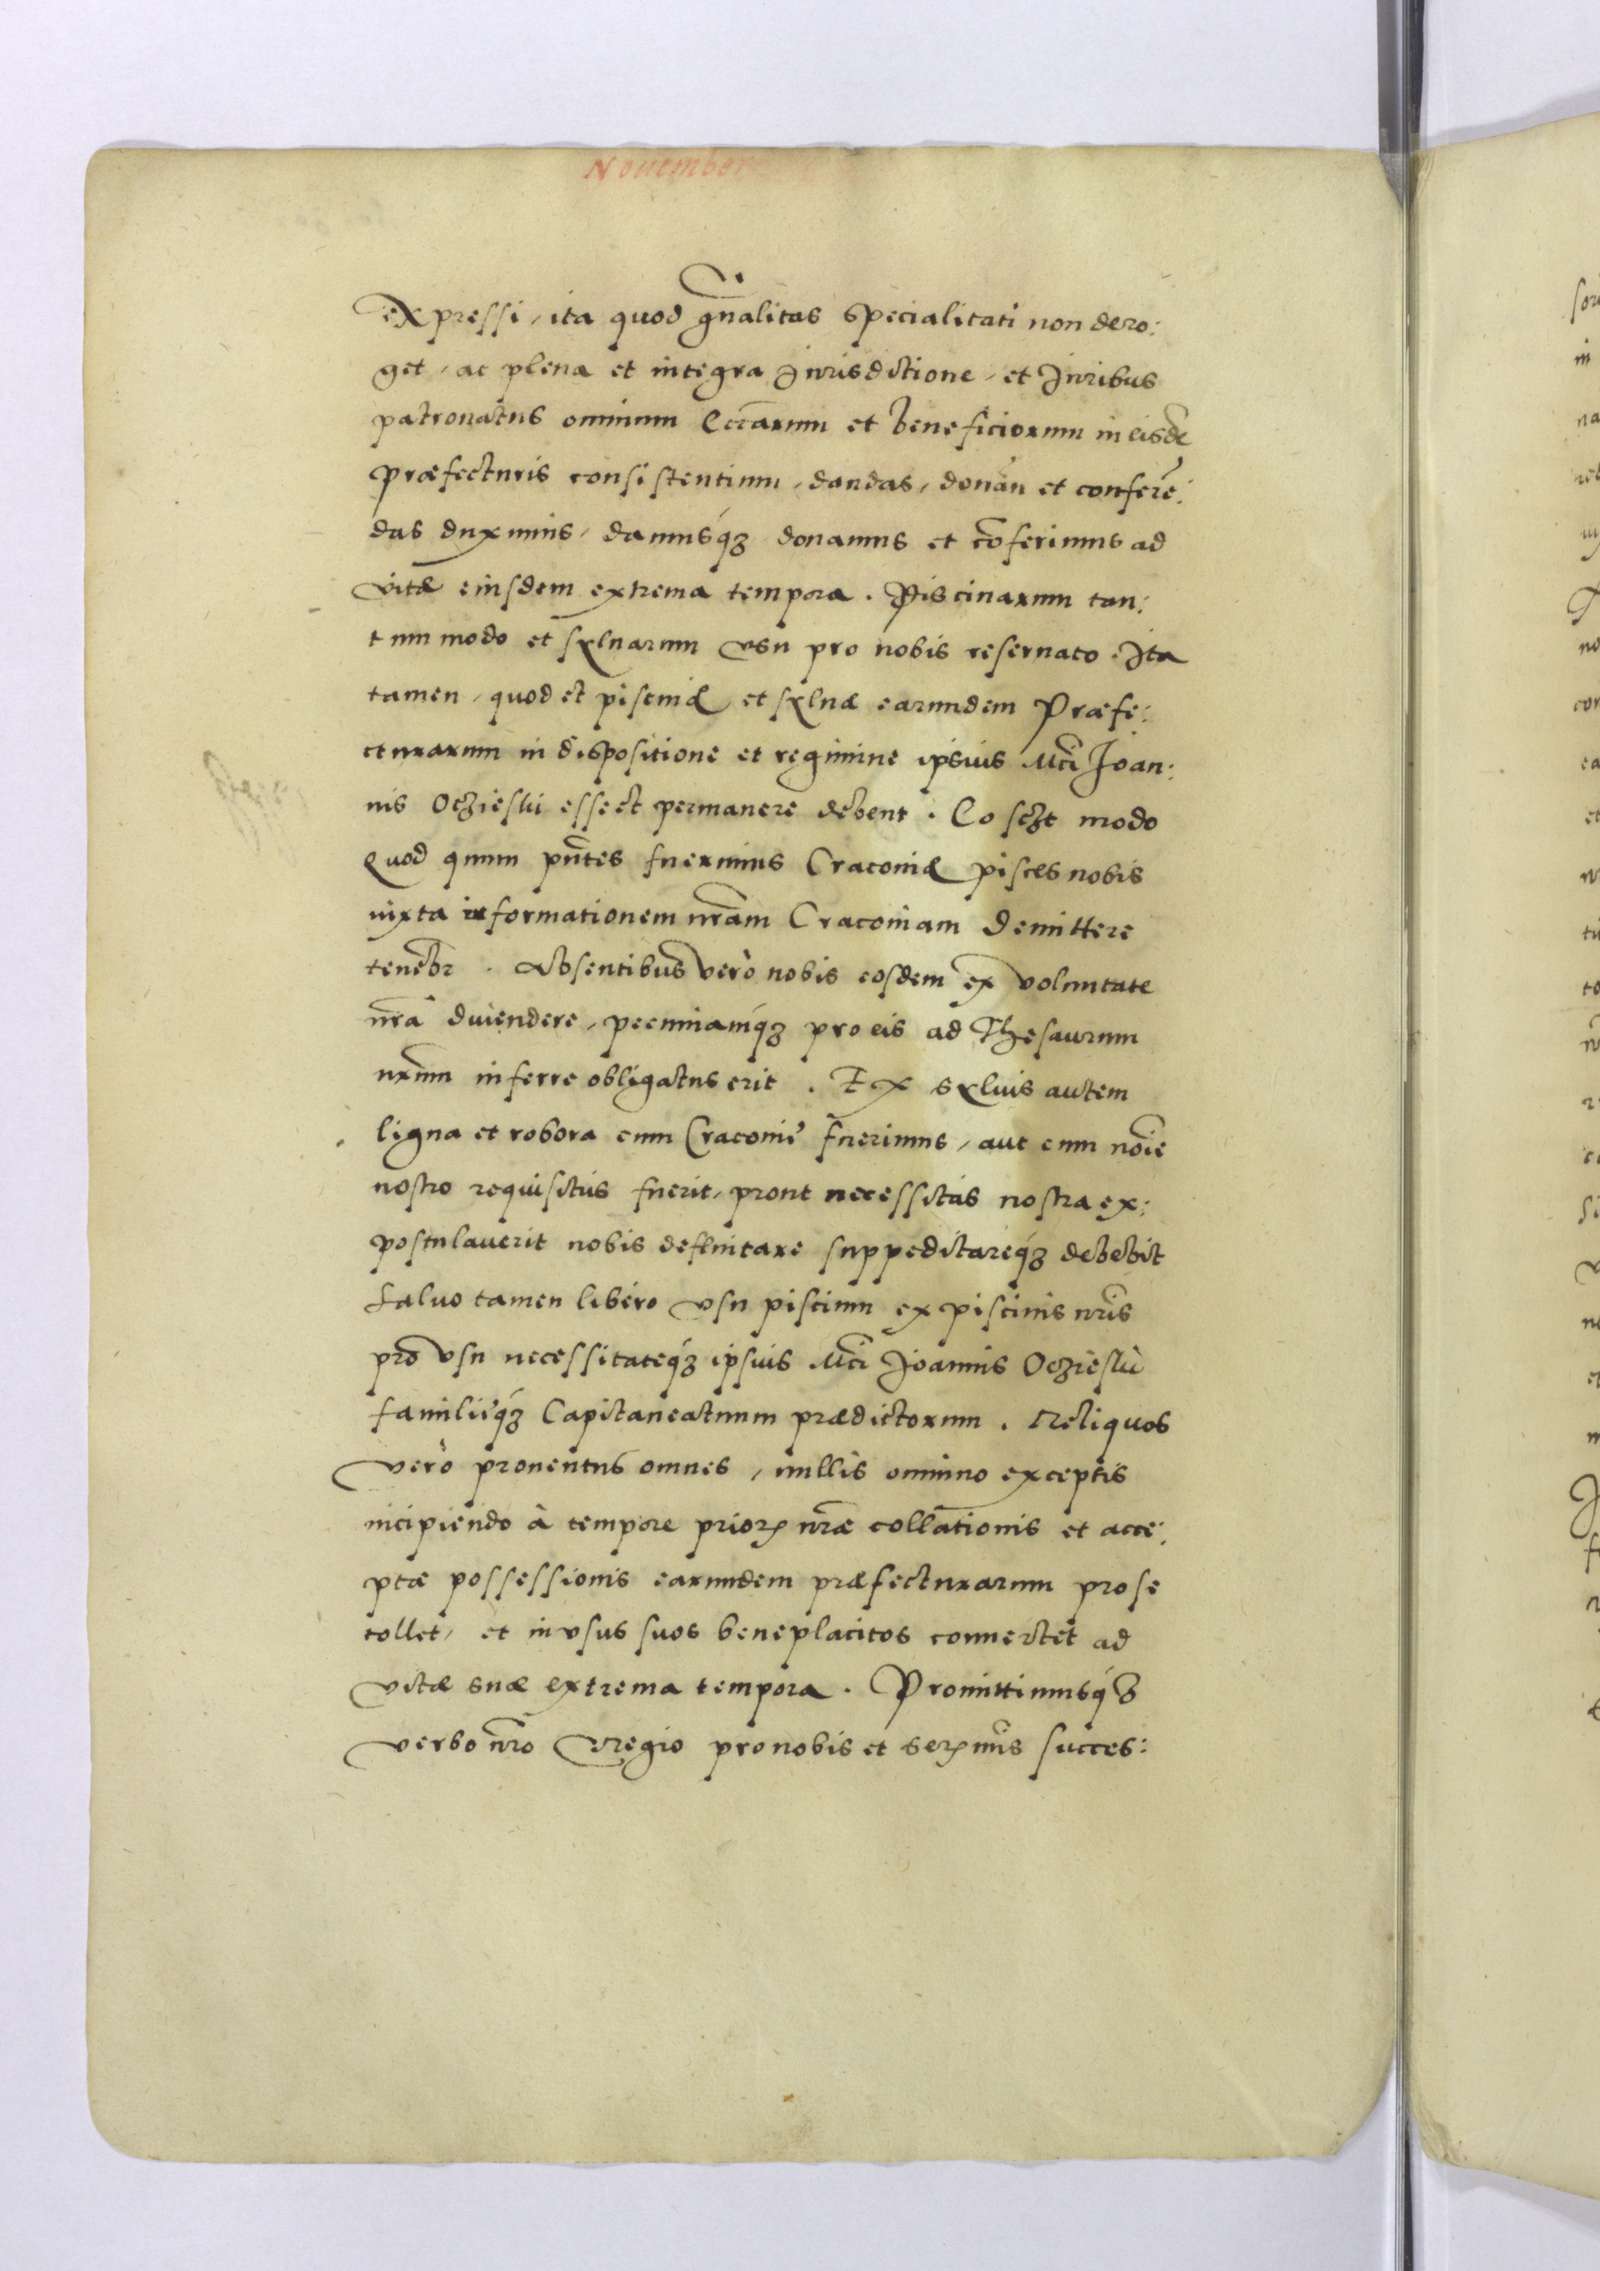 Nouember
expressi, ita quod gn̄alitas specialitati non dero:
get, ac plena et integra Jurisdictione, et Juribus
patronatus omnium Ecc̄rarum et beneficiorum in eisdē
præfecturis consistentium, dandas, donan̄ et conferē:
das duximus, damusq́ꝫ donamus et cōferimus ad
vitæ eiusdem extrema tempora. Piscinarum tan:
tummodo et syluarum vsu pro nobis reseruato. Ita
tamen, quod et piscinæ et syluæ earundem Præfe:
cturarum in dispositione et regimine ipsius Mci Joan:
nis Oczieski esse et permanere debent. Eo sczt modo
Quod quum pn̄tes fuerimus Cracouiæ pisces nobis
iuxta informationem nr̄am Cracouiam demittere
tenebr. Absentibus verò nobis eosdem ex voluntate
nr̄a diuendere, pecuniamq́ꝫ pro eis ad Thesaurum
nr̄um inferre obligatus erit. Ex syluis autem
ligna et robora cum Cracouię fuerimus, aut cum noīe
nostro requisitus fuerit, prout necessitas nostra ex:
postulauerit nobis defluitare suppeditareq́ꝫ debebit
Saluo tamen libero vsu piscium ex piscinis nr̄is
pro vsu necessitateq́ꝫ ipsius Mci Joannis Oczieski
familięq́ꝫ Capitaneatuum prædictorum. Reliquos
verò prouentus omnes, nullis omnino exceptis
incipiendo à tempore prioris nr̄æ collationis et acce:
ptæ possessionis earundem præfecturarum pro se
tollet, et in vsus suos beneplacitos conuertet ad
vitæ suæ extrema tempora. Promittimusq́ꝫ
verbo nr̄o Regio pro nobis et sermis succes: